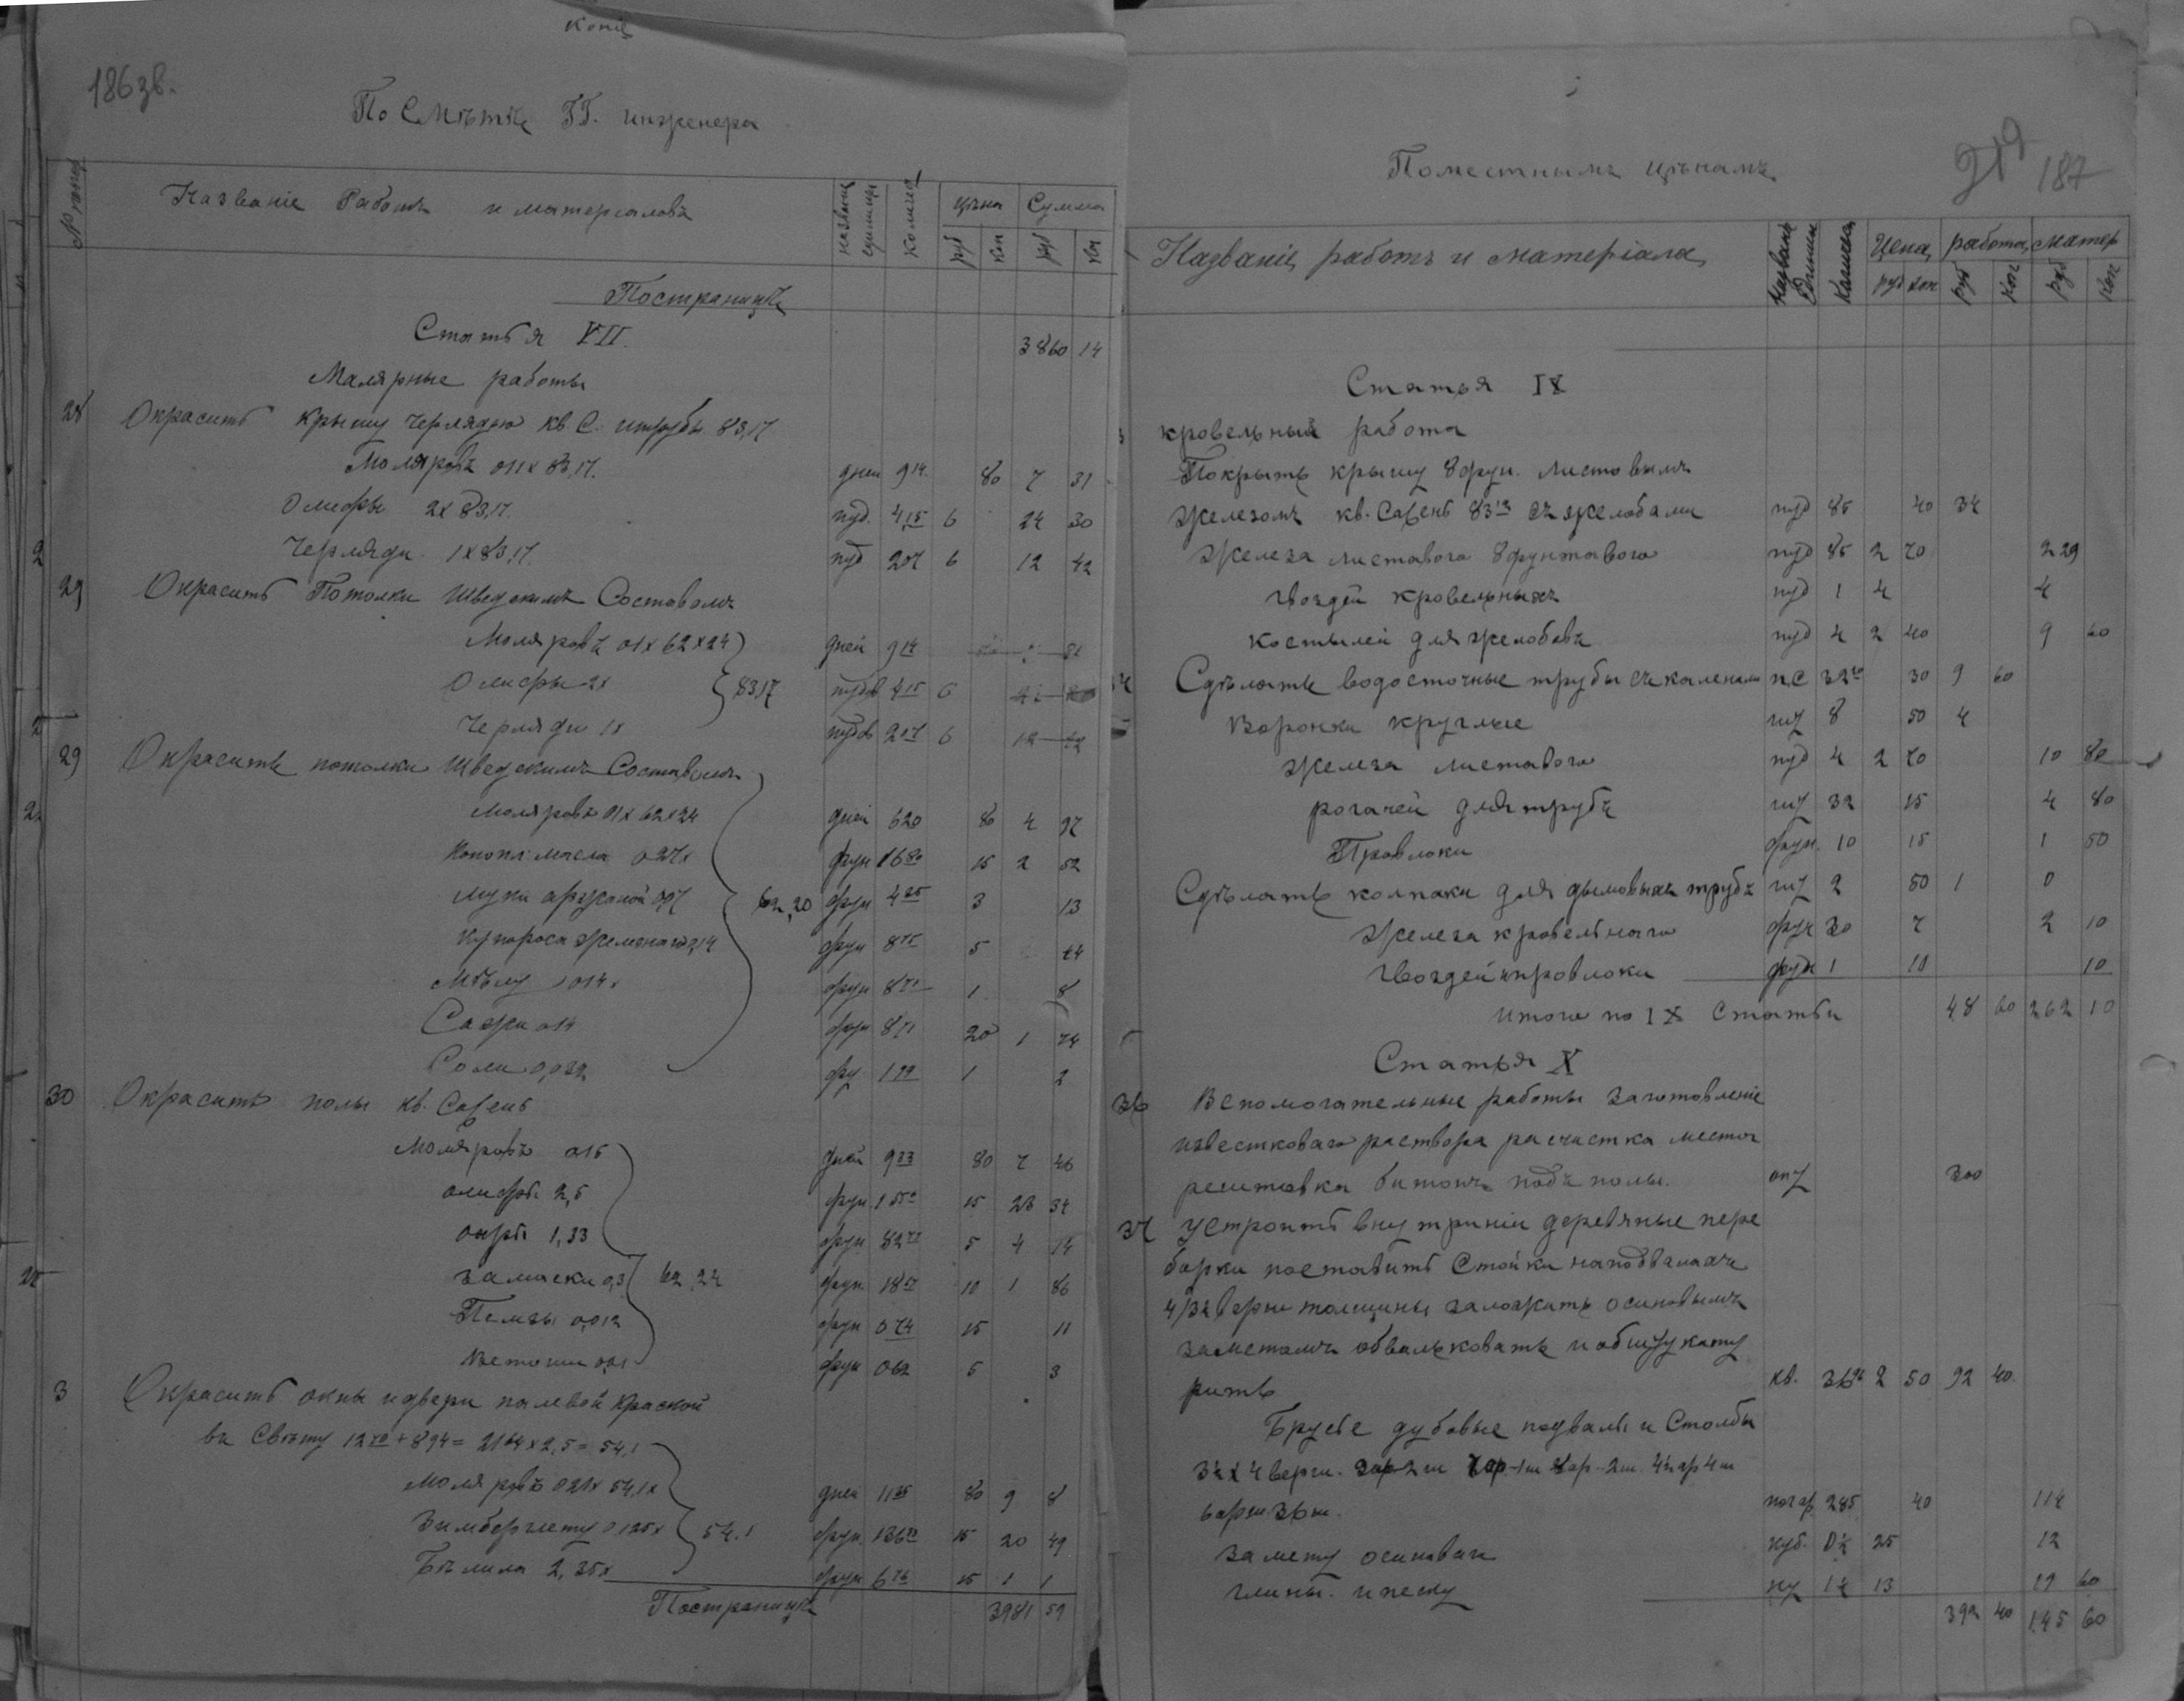 Копія
186 зв.
По Смѣтѣ ГГ. инженера
Названіе Работъ и матеріаловъ названіе единицы Количес цѣна Сумма
руб коп руб коп
Постраницѣ
Статья VII. 3860 14
Малярные работы
28 Окрасить крышу черлядью кв. С. итрубы 83,17
Моляровъ 011 х 83,17. дней 914 80 7 31
Олифы 2 х 83,17 пуд. 4,15 6 24 30
Черляди 1 х 83,17. пуд 207 6 12 42
29 Окрасить Потолки Шведскимъ Составомъ
Моляровъ 01 х 62 х 24 дней 914
Олифы 2х 83,17 пудов 415 6
Черляди 1х пудов 207 6 12 42
29 Окрасить потолки Шведскимъ Составомъ
Моляровъ 01 х 62 х 24 дней 620 80 4 97
Конопл. масла 0.27х фун 1680 15 2 52
муки аржаной 0,07 62,20 фун 435 3 13
Купороса железнаго 0,14 фун 875 5 44
Мѣлу 014х фун 871 1 8
Сажи 014 фун 871 20 1 74
Соли 0,032 фу 199 1 2
30 Окрасить полы кв. Сажень
Моляровъ 015 дней 933 80 7 46
олифы 2,5 фун 1550 15 23 34
охры 1,33 фун 8277 5 4 14
замаски 0,3 62,24 фун 1867 10 1 86
Пемзы 0,012 фун 074 15 11
Ветоши 0,01 фун 062 5 3
3 Окрасить окны и двери палевой краской
въ Свѣту 1270 + 894 = 2164 х 2,5 = 54,1
Моляровъ 021 х 54,1х дней 1136 80 9 8
54.1 фун 136 15 20 49
Бѣлила 2,35х фун 676 15 1 1
Постраницѣ 3981 59
Поместнымъ цѣнамъ
219 187
Названіе работъ и матеріала Названіе Единицы Количес Цена работа матер
руб коп руб коп руб коп
Статья IX
кровельныя работа
Покрыть крышу 8 фун. листовымъ
железомъ кв. Сажень 8317 съ желобами пуд 85 40 34
Железа листового 8 фунтового пуд 85 2 70 229
Гвоздей кровельныхъ пуд 1 4 4
костылей для желобовъ пуд 4 2 40 9 60
Сдѣлать водосточные трубы съ коленами п.с 3220 30 9 60
Воронки круглые шт 8 50 4
Железа листового пуд 4 2 70 10 80
рогачей для трубъ шт 32 15 4 80
Провлоки фун. 10 15 1 50
Сдѣлать колпаки для дымовыхъ трубъ шт 2 50 1 0
Железа кровельнаго фун 30 7 2 10
Гвоздей и провлоки фун 1 10 10
итого по IX Статьи 48 60 262 10
Статья X
36 Вспомогательные работы заготовленіе
известковаго раствора расчистка места
рештовка битонъ подъ полы. 300
37 Устроить внутриніи деревяные пере
борки поставить Стойки на подваламъ
4/3½ верш толщины заложить осиновымъ
заметомъ обвальковать и обштука ту
рить кв. 3696 2 50 92 40
Брусье дубовые подвалы и Столбы
3½ х 4 верш. 3 ар 2 ш 7 ар 1 ш 8 ар 2 ш. 4½ ар 4 ш
6 арш 36 ш. пог ар 285 40 114
замету осиноваго куб. 0½ 25 12
глины. и песку ку 1½ 13 19 60
392 40 145 60